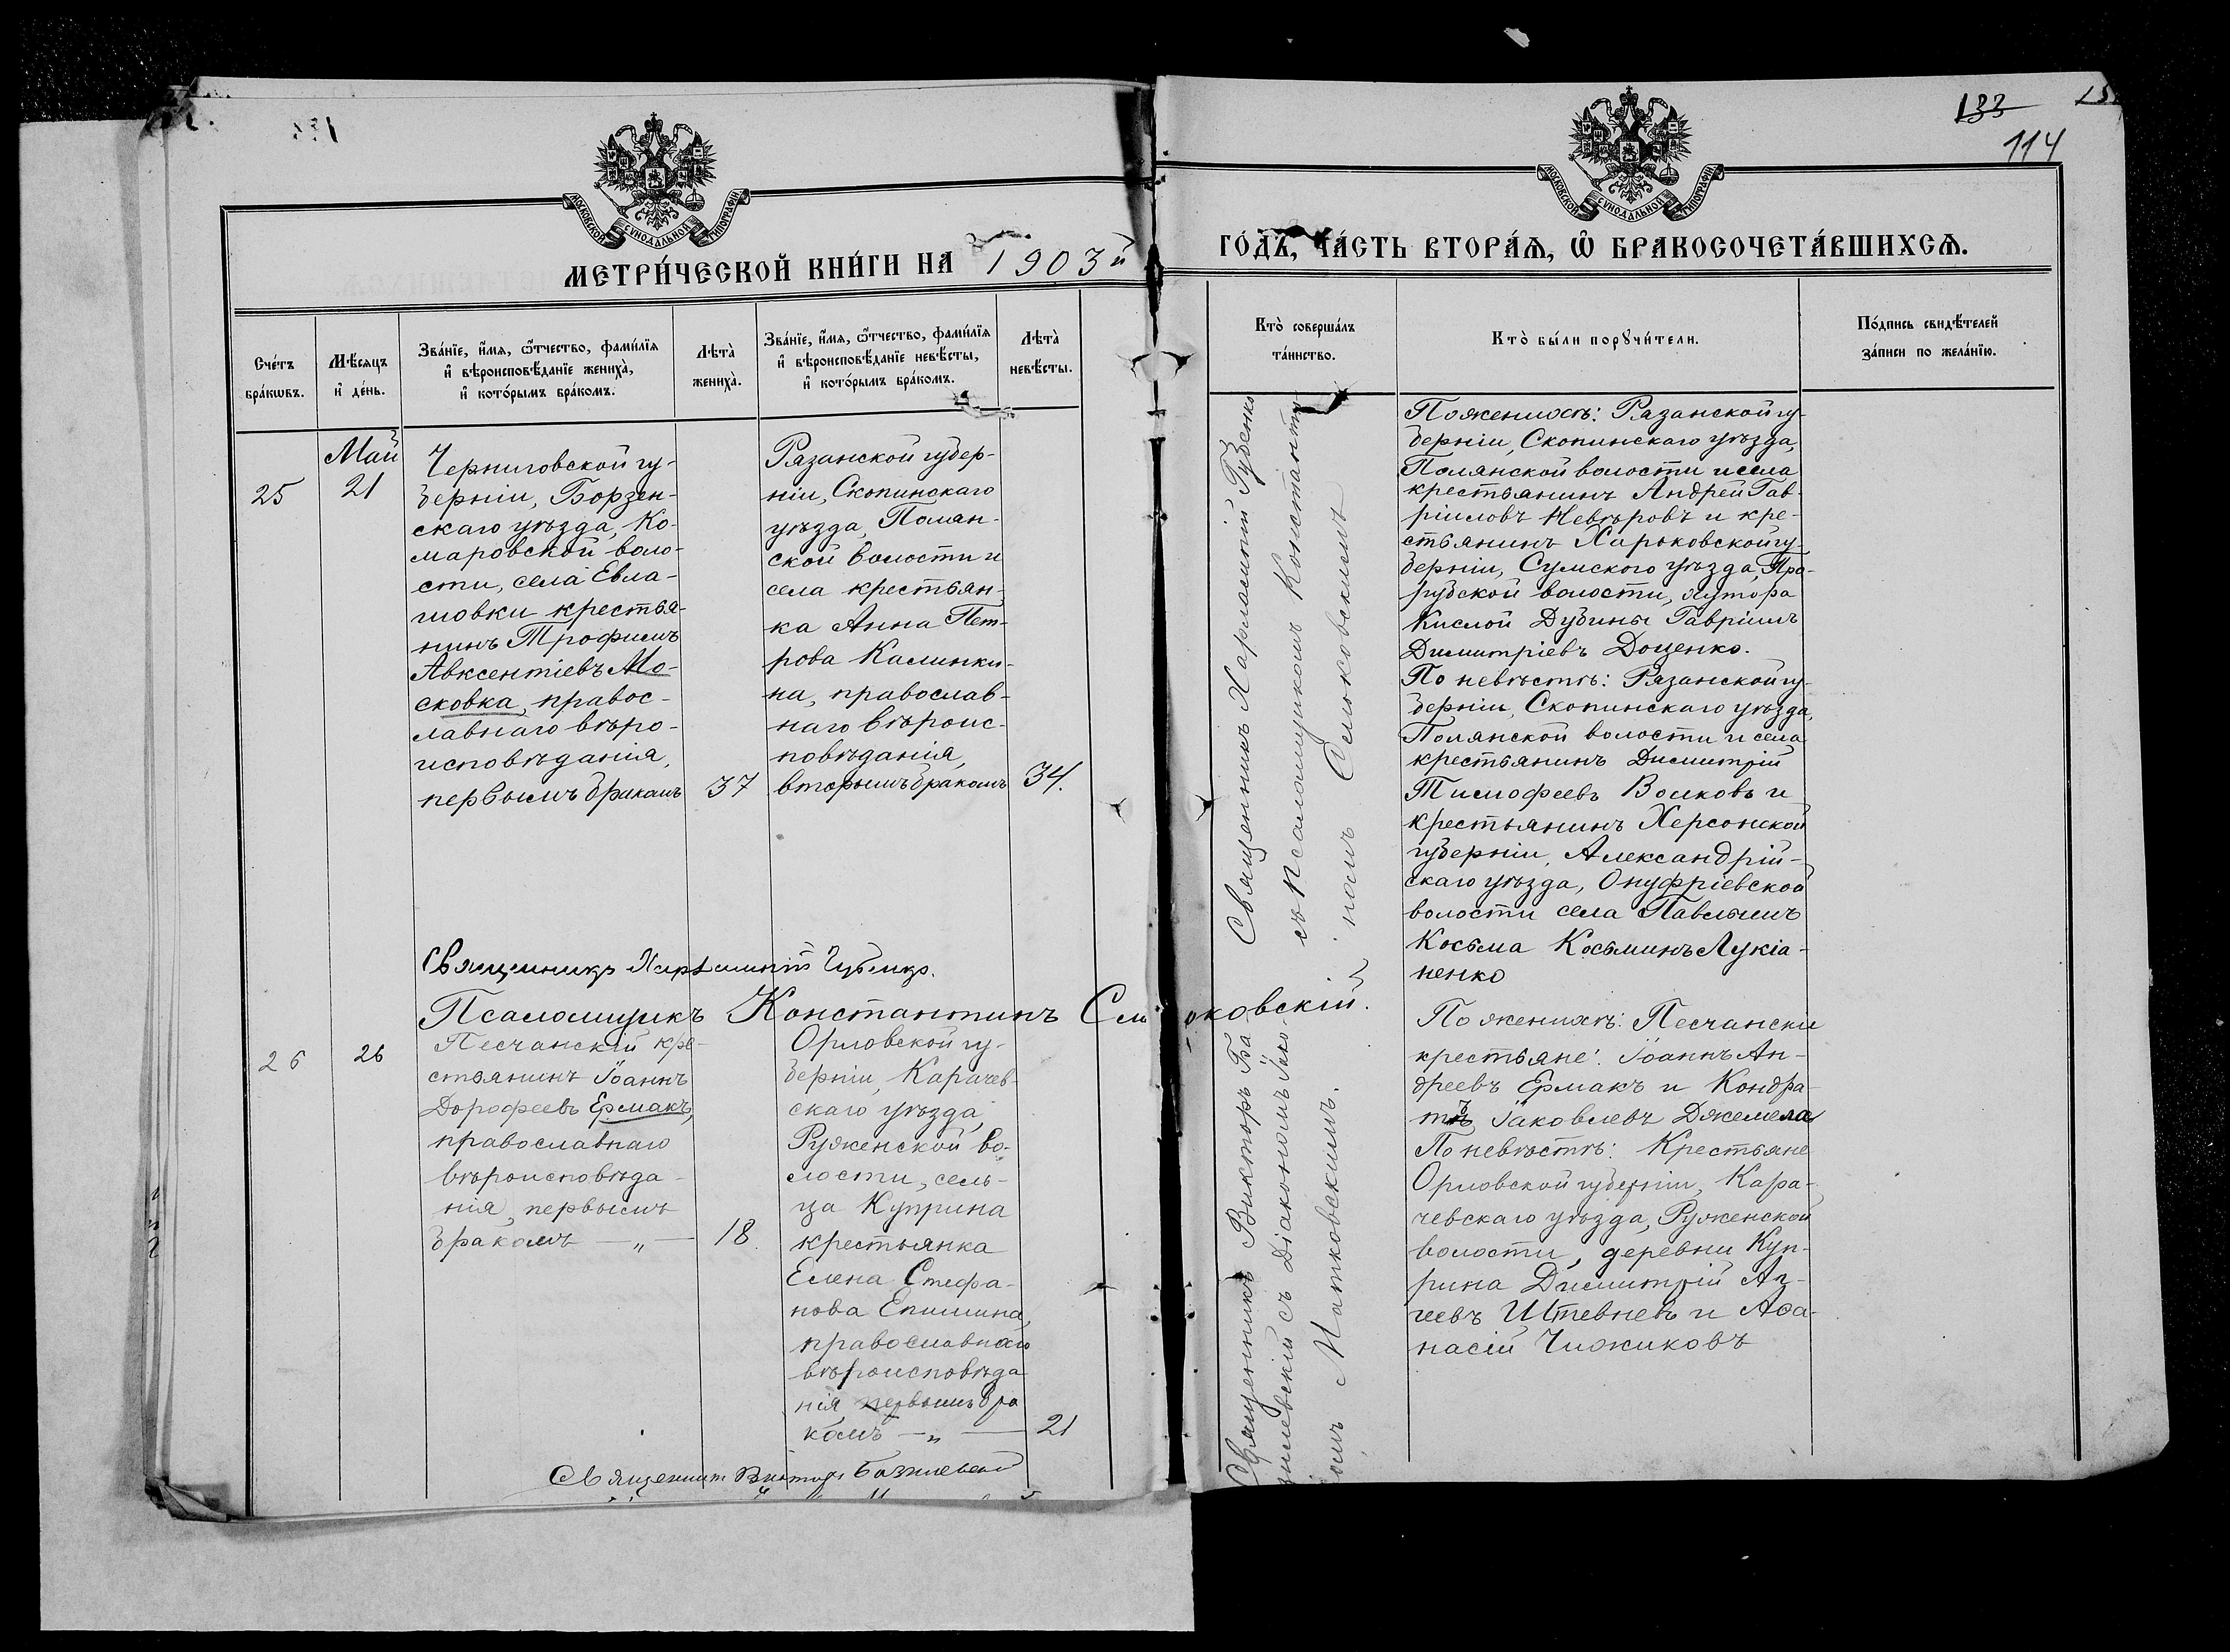 133
114
МОСКОВСКОЙ СѴНОДАЛЬНОЙ ТИПОГРАФІИ
МОСКОВСКОЙ СѴНОДАЛЬНОЙ ТИПОГРАФІИ
МЕТРИ́ЧЕСКОЙ КНИ́ГИ НА 1903й
ГО́ДЪ, ЧА́СТЬ ВТОРА́Ѧ, Ѽ БРАКОСОЧЕТА́ВШИХСѦ.
Сче́тъ
бра́кѡвъ.
Мѣ́сяцъ
и҆ де́нь.
Зва́нїе, и҆́мѧ, ѻ҆́тчество, фами́лїѧ
и҆ вѣроисповѣ́данїе жениха̀,
и҆ кото́рымъ бра́комъ.
Лѣта̀
жениха̀.
Зва́нїе, и҆́мѧ, ѻ҆́тчество, фами́лїѧ
и҆ вѣроисповѣ́данїе невѣ́сты,
и҆ кото́рымъ бра́комъ.
Лѣта̀
невѣ́сты.
Кто̀ соверша́лъ
та́инство.
Кто̀ бы́ли порꙋчи́тели.
По́дпись свидѣ́телей
за́писи по жела́нїю.
25
Май
21
Черниговской гу-
берніи, Борзен-
скаго уѣзда, Ко-
маровской воло-
сти, села Евла-
шовки крестья-
нинъ Трофимъ
Авксентіевъ Мо-
сковка, правос-
лавнаго вѣро-
исповѣданія,
первымъ бракомъ
37
Рязанской губер-
ніи, Скопинскаго
уѣзда, Полян-
ской волости и
села крестьян-
ка Анна Пет-
рова Калинки-
на, православ-
наго вѣроис-
повѣданія,
вторымъ бракомъ
34.
Священникъ Харлампій Губенко
съ Псаломщикомъ Константи-
номъ Селюковскимъ
По женихѣ: Рязанской гу-
берніи, Скопинскаго уѣзда,
Полянской волости и села
крестьянинъ Андрей Гав-
ріиловъ Невѣровъ и кре-
стьянинъ Харьковской гу-
берніи, Сумского уѣзда,
волости, хутора
Кислой Дубины Гавріилъ
Димитріевъ Доценко.
По невѣстѣ: Рязанской гу-
берніи, Скопинскаго уѣзда,
Полянской волости и села
крестьянинъ Димитрій
Тимофеевъ Волковъ и
крестьянинъ Херсонской
губерніи, Александрій-
скаго уѣзда, Онуфріевской
волости села Павлышъ
Косьма Косьминъ Лукіа-
ненко
Священникъ Харлампій Губенко.
Псаломщикъ Константинъ Селюковскій.
26
26
Песчанскій кре-
стьянинъ Іоаннъ
Дорофеевъ Ермакъ,
православнаго
вѣроисповѣда-
нія, первымъ
бракомъ — „ —
18
Орловской гу-
берніи, Карачев-
скаго уѣзда,
Руженской во-
лости, сель-
ца Куприна
крестьянка
Елена Стефа-
нова Епишина,
православнаго
вѣроисповѣда
нія первымъ бра
комъ — „ —
21
Священникъ Викторъ Ба-
зилевскій съ Діакономъ Іако-
вомъ Матковскимъ.
По женихѣ: Песчанскіе
крестьяне: Іоаннъ Ан-
дреевъ Ермакъ и Кондра-
тъ Іаковлевъ Джемела
По невѣстѣ: Крестьяне
Орловской губерніи, Кара-
чевскаго уѣзда, Руженской
волости, деревни Куп-
рина Димитрій Аг-
геевъ Штевневъ и Аѳа-
насій Чижиковъ
Священникъ Викторъ Базилевскій